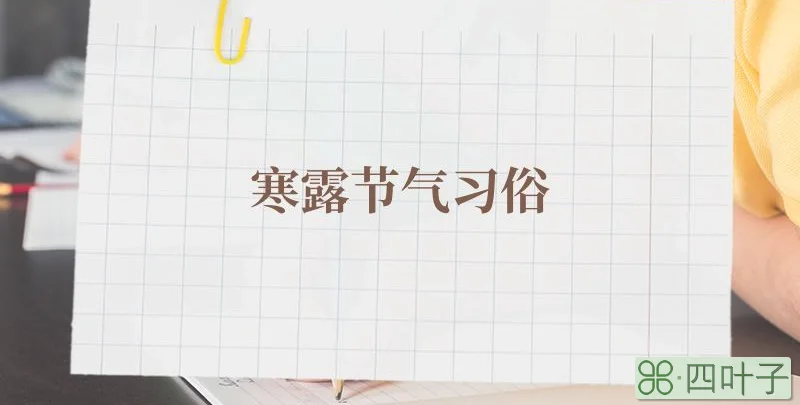 寒露节气习俗
四叶子